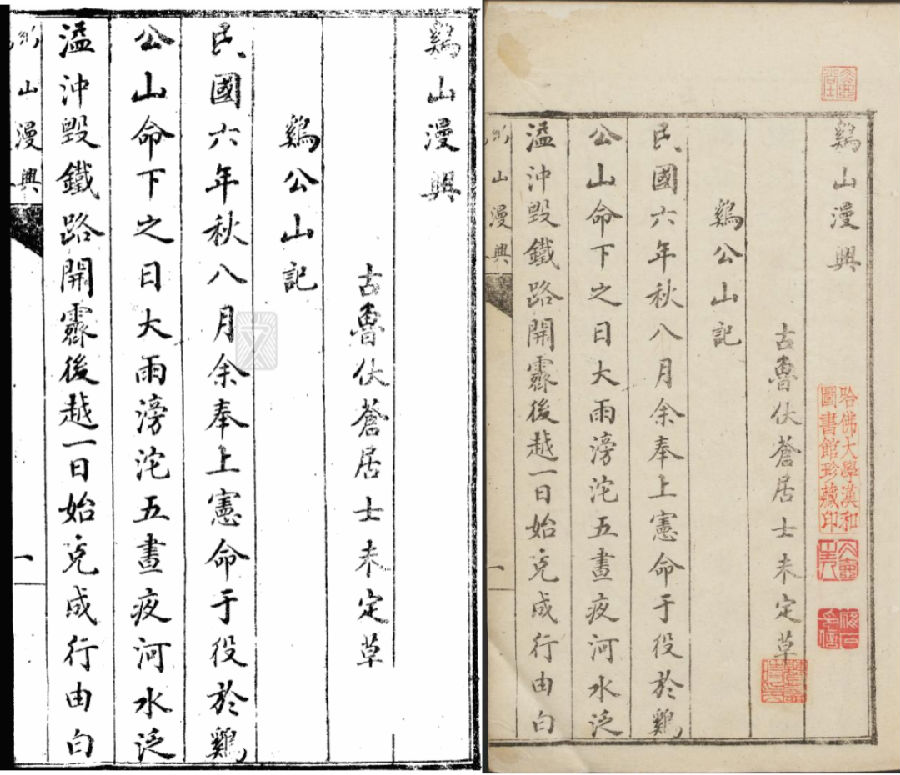 鷄山漫興
古魯伏蒼居士未定草
鷄公山記
民國六年秋八月余奉上憲命于役於鷄
公山命下之日大雨滂沱五晝夜河水泛
溢沖毀鐵路開霽後越一日始克成行由白
山漫興
一
鷄山漫興
古魯伏蒼居士未定草
鷄公山記
民國六年秋八月余奉上憲命于役於鷄
公山命下之日大雨滂沱五晝夜河水泛
溢沖毀鐵路開霽後越一日始克成行由白
山漫興
一
哈佛大學漢和
圖書館珍藏印